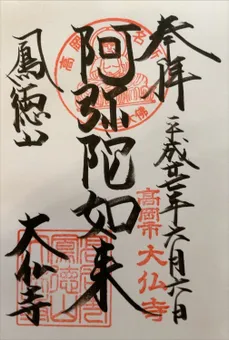 奉拝
平成廿年六月六日
高岡市
大仏寺
阿弥陀如来
鳳徳山
大仏寺
高岡